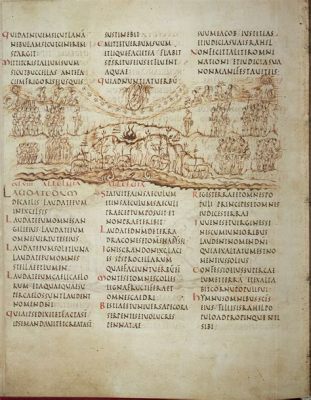 QUIDATNIUEMSICUTLANA
NEBULAMSICUTCINEREM
SPARGIT
MITTITCRISTALLUMSUUM
SICUTBUCCELLAS ANTEFA
CIEMFRIGORISEIUSQUIS
SUSTINEBIT
EMITTETUERBUMSUUM
ETLIQUEFACIETEA FLABIT
SPIRITUSEIUSETFLUENT
AQUAE
QUIADNUNTIATUERBU
SUUMIACOB IUSTITIAS
ETIUDICIASUAISRAHEL
NONFECITTALITEROMNI
NATIONI ETIUDICIASUA
NONMANIFESTAUITEIS
ALLELUIA
LAUDATEDNM
DECAELIS LAUDATEEUM
INEXCELSIS
LAUDATEEUMOMNESAN
GELIEIUS LAUDATEEUM
OMNESUIRTUTESEIUS
LAUDATEEUMSOLETLUNA
LAUDATEEUMOMNES
STELLAEETLUMEN
LAUDATEEUMCAELICAELO
RUM ETAQUAEQUAESU
PERCAELOSSUNTLAUDENT
NOMENDNI
QUIAIPSEDIXITETFACTASU
IPSEMANDAUITETCREATASU
ALLELUIA
STATUITEAINSAECULUM
ETINSAECULUMSAECULI
PRAECEPTUMPOSUIT ET
NONPRAETERIBIT
LAUDATEDNMDETERRA
DRACONESETOMNESABYSSI
IGNISGRANDONIXGLACI
ES SPIRITUSPROCELLARUM
QUAEFACIUNTUERBUEIUS
MONTESETOMNESCOLLES
LIGNAFRUCTIFERAET
OMNESCAEDRI
BESTIAEETUNIUERSAPECORA
SERPENTESETUOLUCRES
PENNATAE
REGESTERRAEETOMNESPO
PULI PRINCIPESETOMNES
IUDICESTERRAE
IUUENESETUIRGINESSE
NESCUMIUNIORIBUS
LAUDENTNOMENDNI
QUIAEXALTATUMESTNO
MENEIUSSOLIUS
CONFESSIOEIUSSUPERCAE
LUMETTERRA ETEXALTA
BITCORNUPOPULISUI
HYMNUSOMNIBUSSCIS
EIUS FILIISISRAHELPO
PULOADPROPINQUANTI
SIBI